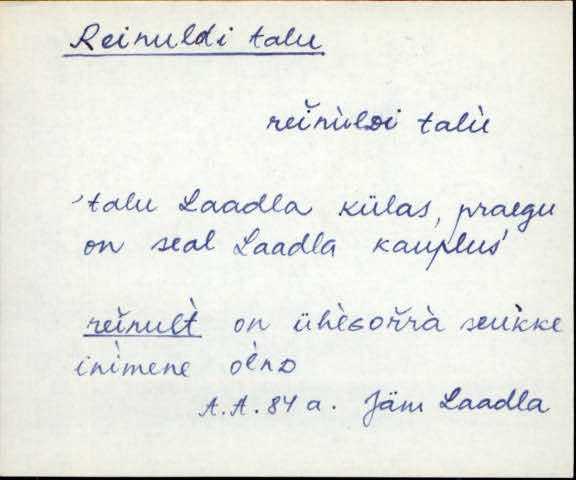 Reinuldi talu
reĭnùlᴅi talù
'talu Laadla külas, praegu
on seal Laadla kauplus'
reĭnult̀ on ühèɢoŕŕà seukke
inìmene olnᴅ
A.A. 84 a. Jäm Laadla